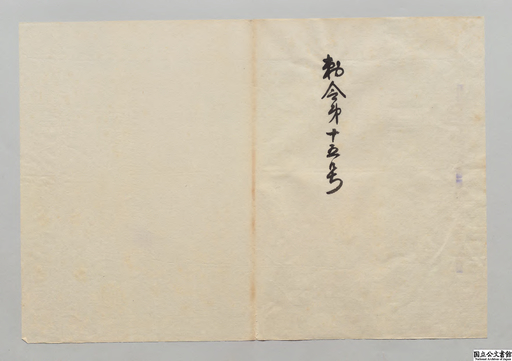 勅令第十五号
国立公文書館
National Archives of Japan